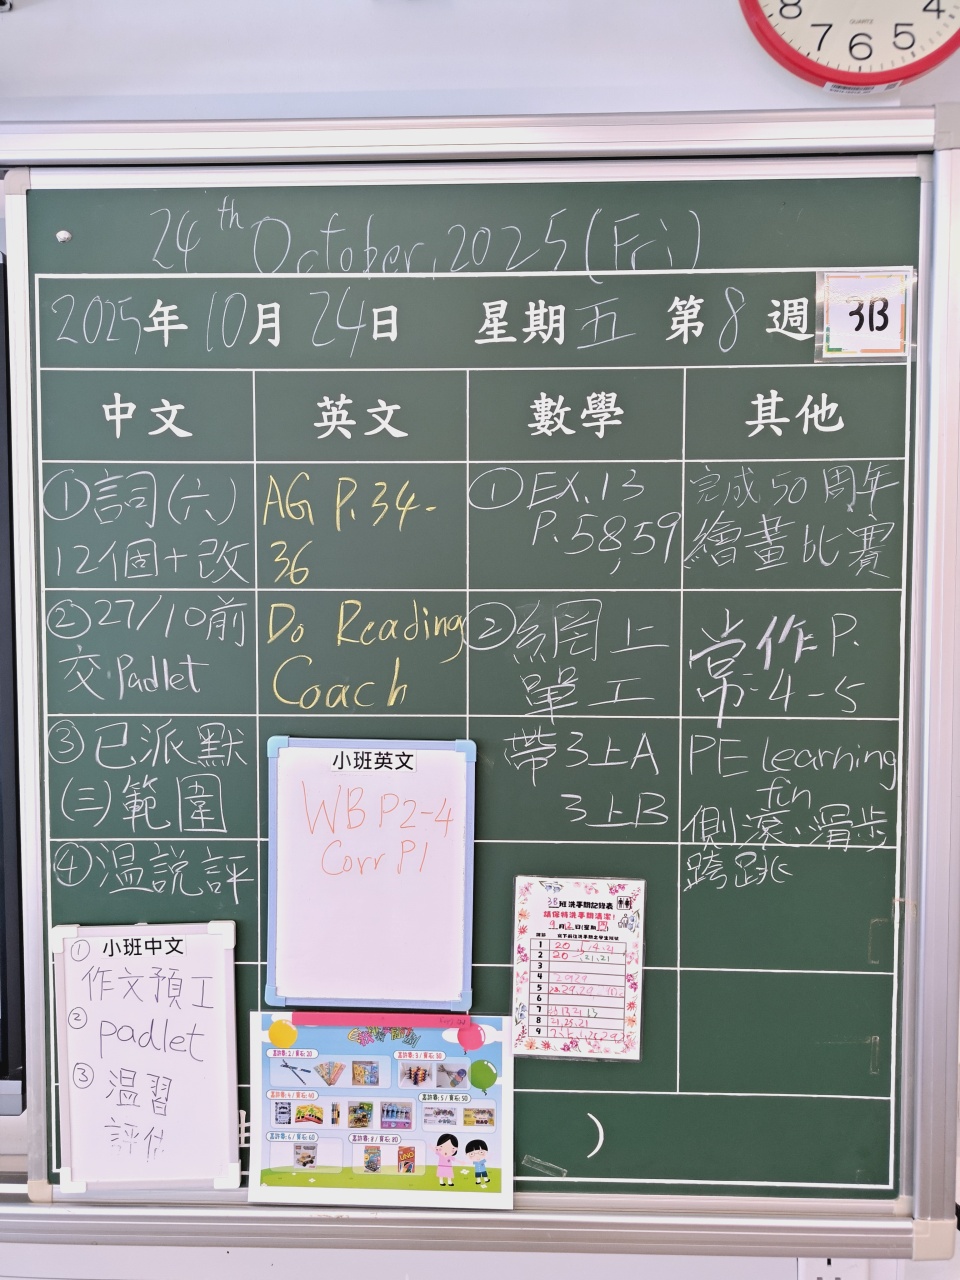 8 7 6 5 4
QUARTZ
24th October, 2025 (Fri)
2025年10月24日 星期五 第8週
3B
中文 英文 數學 其他
①詞(六)
12個+改
②27/10前
交Padlet
③已派默
(三)範圍
④溫說評
AG P.34-
36
Do Reading
Coach
①EX.13
P.58,59
②網上
單工
帶3上A
3上B
完成50周年
繪畫比賽
常作P.
4-5
PE learning
fun
側滾、滑步
跨跳
小班英文
WB P2-4
Corr P1
小班中文
①
作文預工
②
padlet
③
溫習
評估
3B班洗手間記錄表
請保持洗手間清潔!
1
2
3
4
5
6
7
8
9
UNO
)